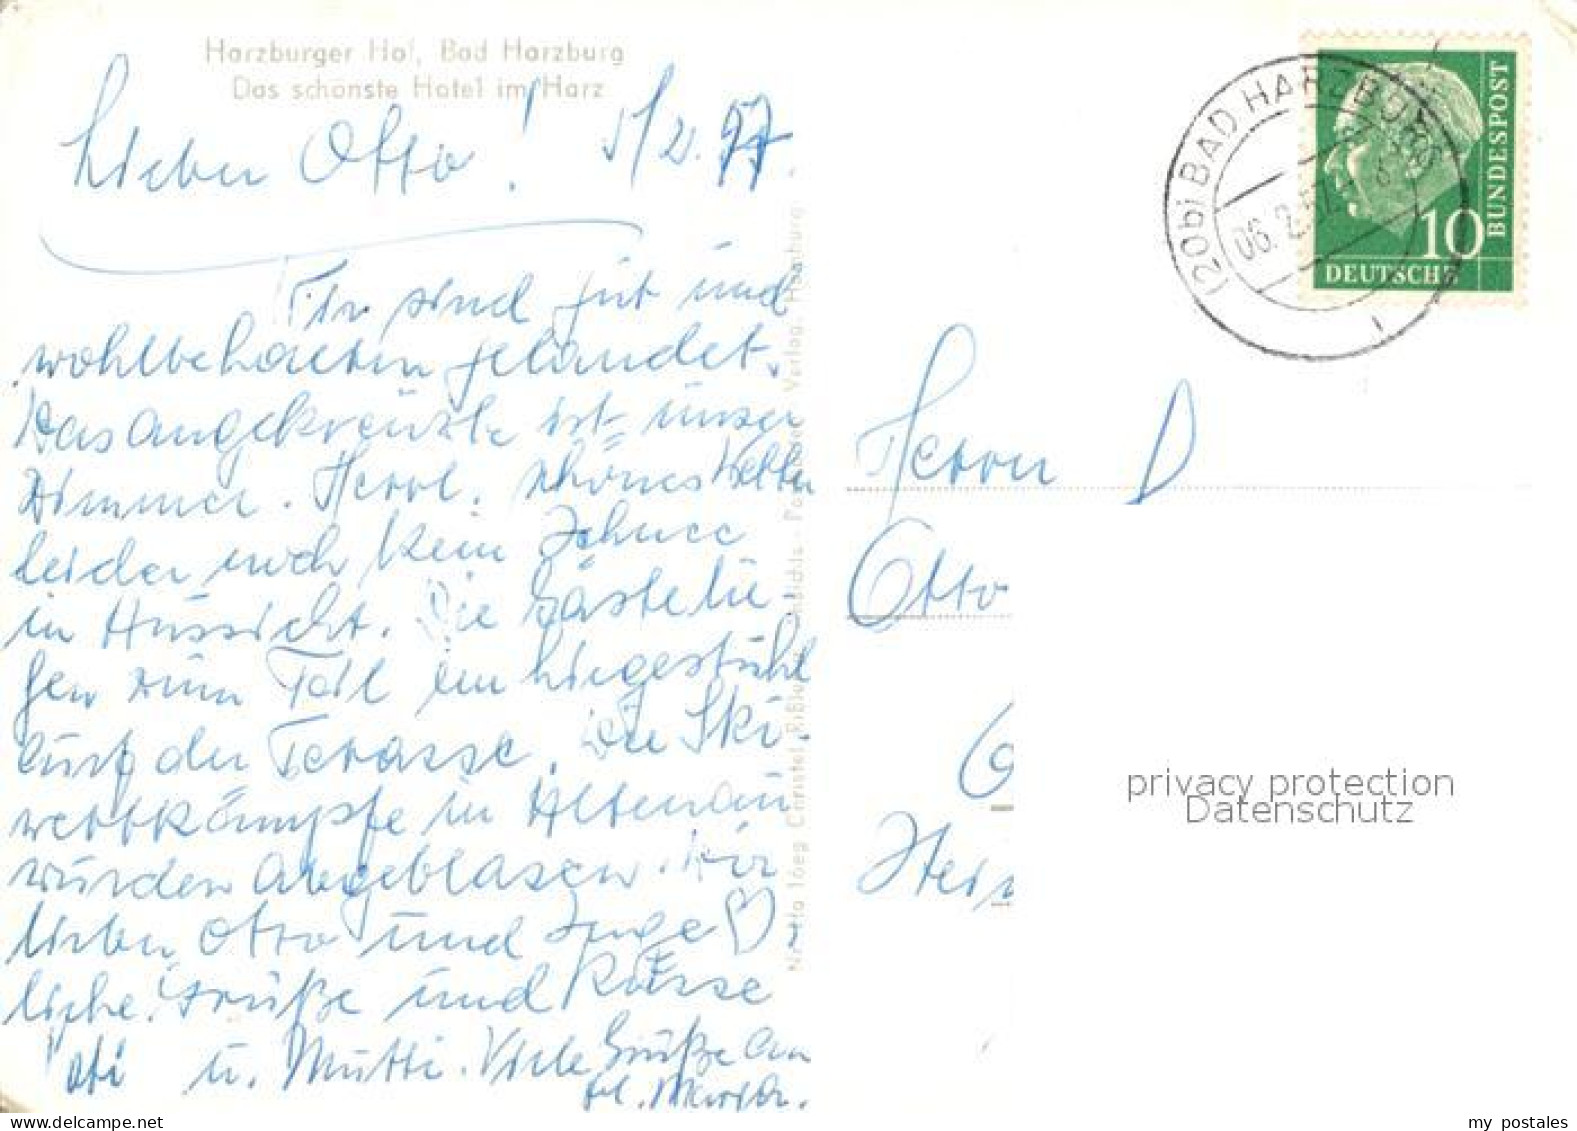 Harzburger Hof, Bad Harzburg
Das schönste Hotel im Harz
Lieber Otto! 5/2.57.
Wir sind gut und
wohlbehalten gelandet.
Das angekreuzte ist unser
Zimmer. Herrl. schönes Wetter
leider noch kein Schnee
in Aussicht. Die Gäste lie-
gen zum Teil im Liegestühl
auf der Terasse. Die Ski-
wettkämpfe in Altenau
wurden abgeblasen. Wir
lieber Otto und Inge
liche Grüße und Küsse
u. Mutti. Viele Grüße an
frl. Maria.
Christel Verlag, Harzburg
(20b) BAD HARZBURG
06.2.57
BUNDESPOST
10
DEUTSCHE
Herrn D
Otto
privacy protection
Datenschutz
my postales